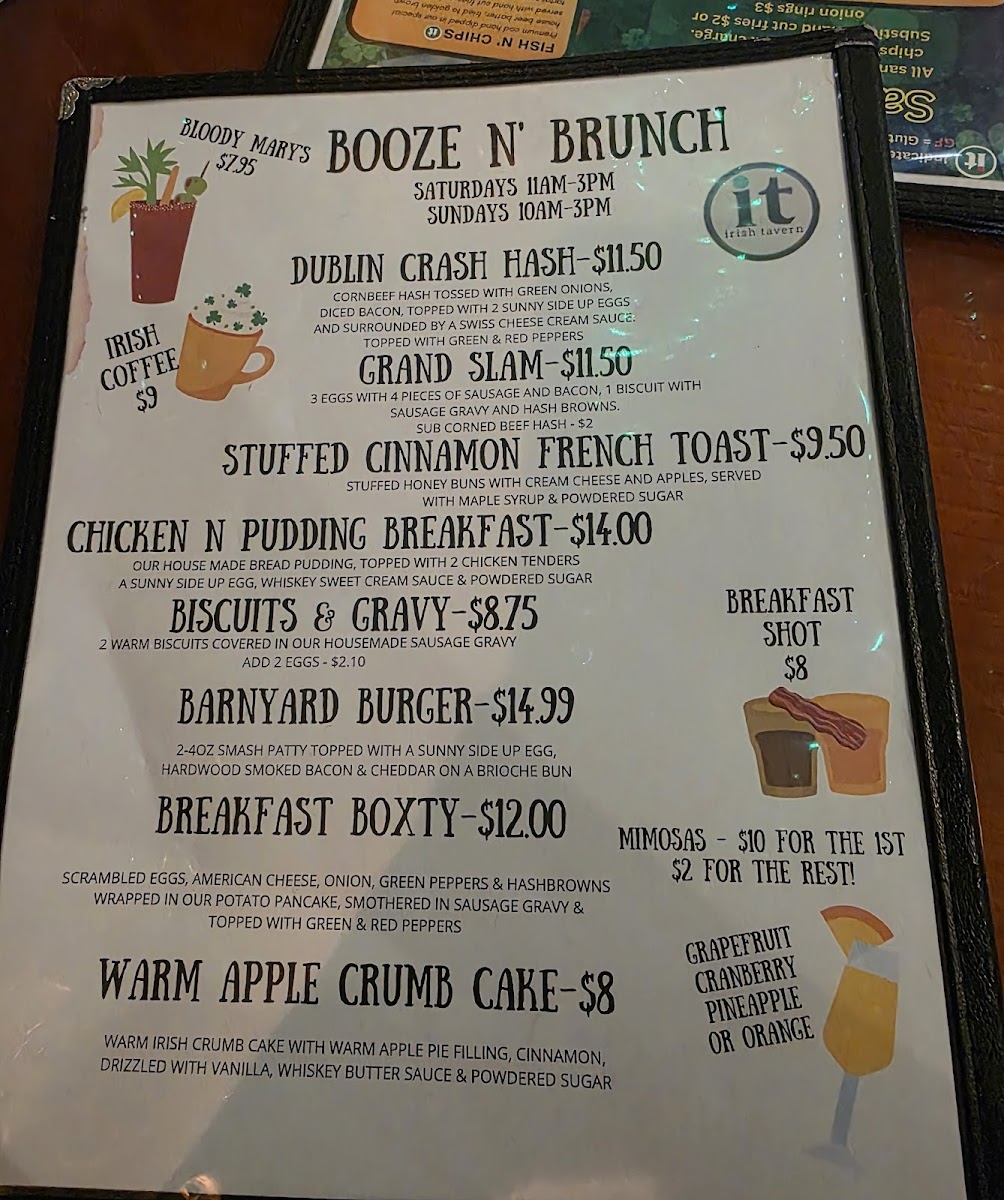 FISH N' CHIPS
Premium cod hand dipped in our special
house beer batter, fried to golden brown
served with hand cut
onion rings $3
hand cut fries $2 or
charge.
chips
All
Sa
GF = Glut
it
BLOODY MARY'S
$7.95
BOOZE N' BRUNCH
SATURDAYS 11AM-3PM
SUNDAYS 10AM-3PM
it
irish tavern
DUBLIN CRASH HASH-$11.50
CORNBEEF HASH TOSSED WITH GREEN ONIONS,
DICED BACON, TOPPED WITH 2 SUNNY SIDE UP EGGS
AND SURROUNDED BY A SWISS CHEESE CREAM SAUCE.
TOPPED WITH GREEN & RED PEPPERS
IRISH
COFFEE
$9
GRAND SLAM-$11.50
3 EGGS WITH 4 PIECES OF SAUSAGE AND BACON, 1 BISCUIT WITH
SAUSAGE GRAVY AND HASH BROWNS.
SUB CORNED BEEF HASH - $2
STUFFED CINNAMON FRENCH TOAST-$9.50
STUFFED HONEY BUNS WITH CREAM CHEESE AND APPLES, SERVED
WITH MAPLE SYRUP & POWDERED SUGAR
CHICKEN N PUDDING BREAKFAST-$14.00
OUR HOUSE MADE BREAD PUDDING, TOPPED WITH 2 CHICKEN TENDERS
A SUNNY SIDE UP EGG, WHISKEY SWEET CREAM SAUCE & POWDERED SUGAR
BISCUITS & GRAVY-$8.75
2 WARM BISCUITS COVERED IN OUR HOUSEMADE SAUSAGE GRAVY
ADD 2 EGGS - $2.10
BREAKFAST
SHOT
$8
BARNYARD BURGER-$14.99
2-4OZ SMASH PATTY TOPPED WITH A SUNNY SIDE UP EGG,
HARDWOOD SMOKED BACON & CHEDDAR ON A BRIOCHE BUN
BREAKFAST BOXTY-$12.00
SCRAMBLED EGGS, AMERICAN CHEESE, ONION, GREEN PEPPERS & HASHBROWNS
WRAPPED IN OUR POTATO PANCAKE, SMOTHERED IN SAUSAGE GRAVY &
TOPPED WITH GREEN & RED PEPPERS
MIMOSAS - $10 FOR THE 1ST
$2 FOR THE REST!
GRAPEFRUIT
CRANBERRY
PINEAPPLE
OR ORANGE
WARM APPLE CRUMB CAKE-$8
WARM IRISH CRUMB CAKE WITH WARM APPLE PIE FILLING, CINNAMON,
DRIZZLED WITH VANILLA, WHISKEY BUTTER SAUCE & POWDERED SUGAR